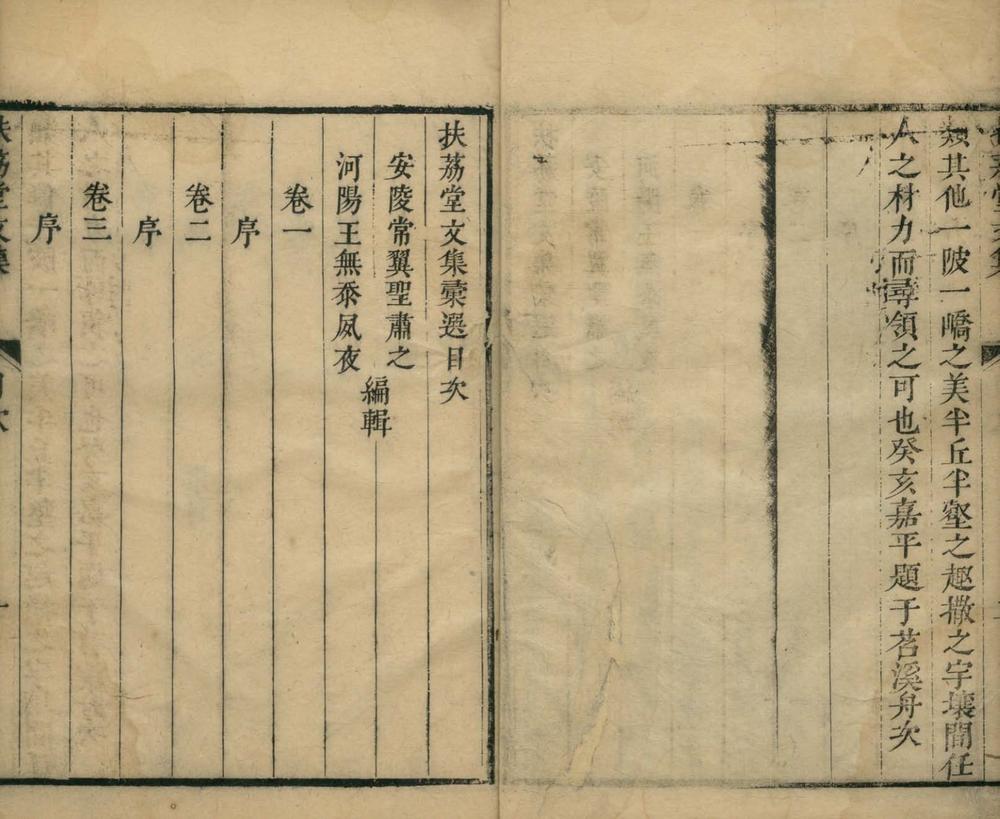 類其他一陂一嶠之美半丘半壑之趣撒之宇壤間任
人之材力而尋領之可也癸亥嘉平題于苕溪舟次
扶荔堂文集稾選目次
安陵常翼聖肅之
河陽王無忝夙夜
編輯
卷一
序
卷二
序
卷三
序
扶荔堂文集
目次
一